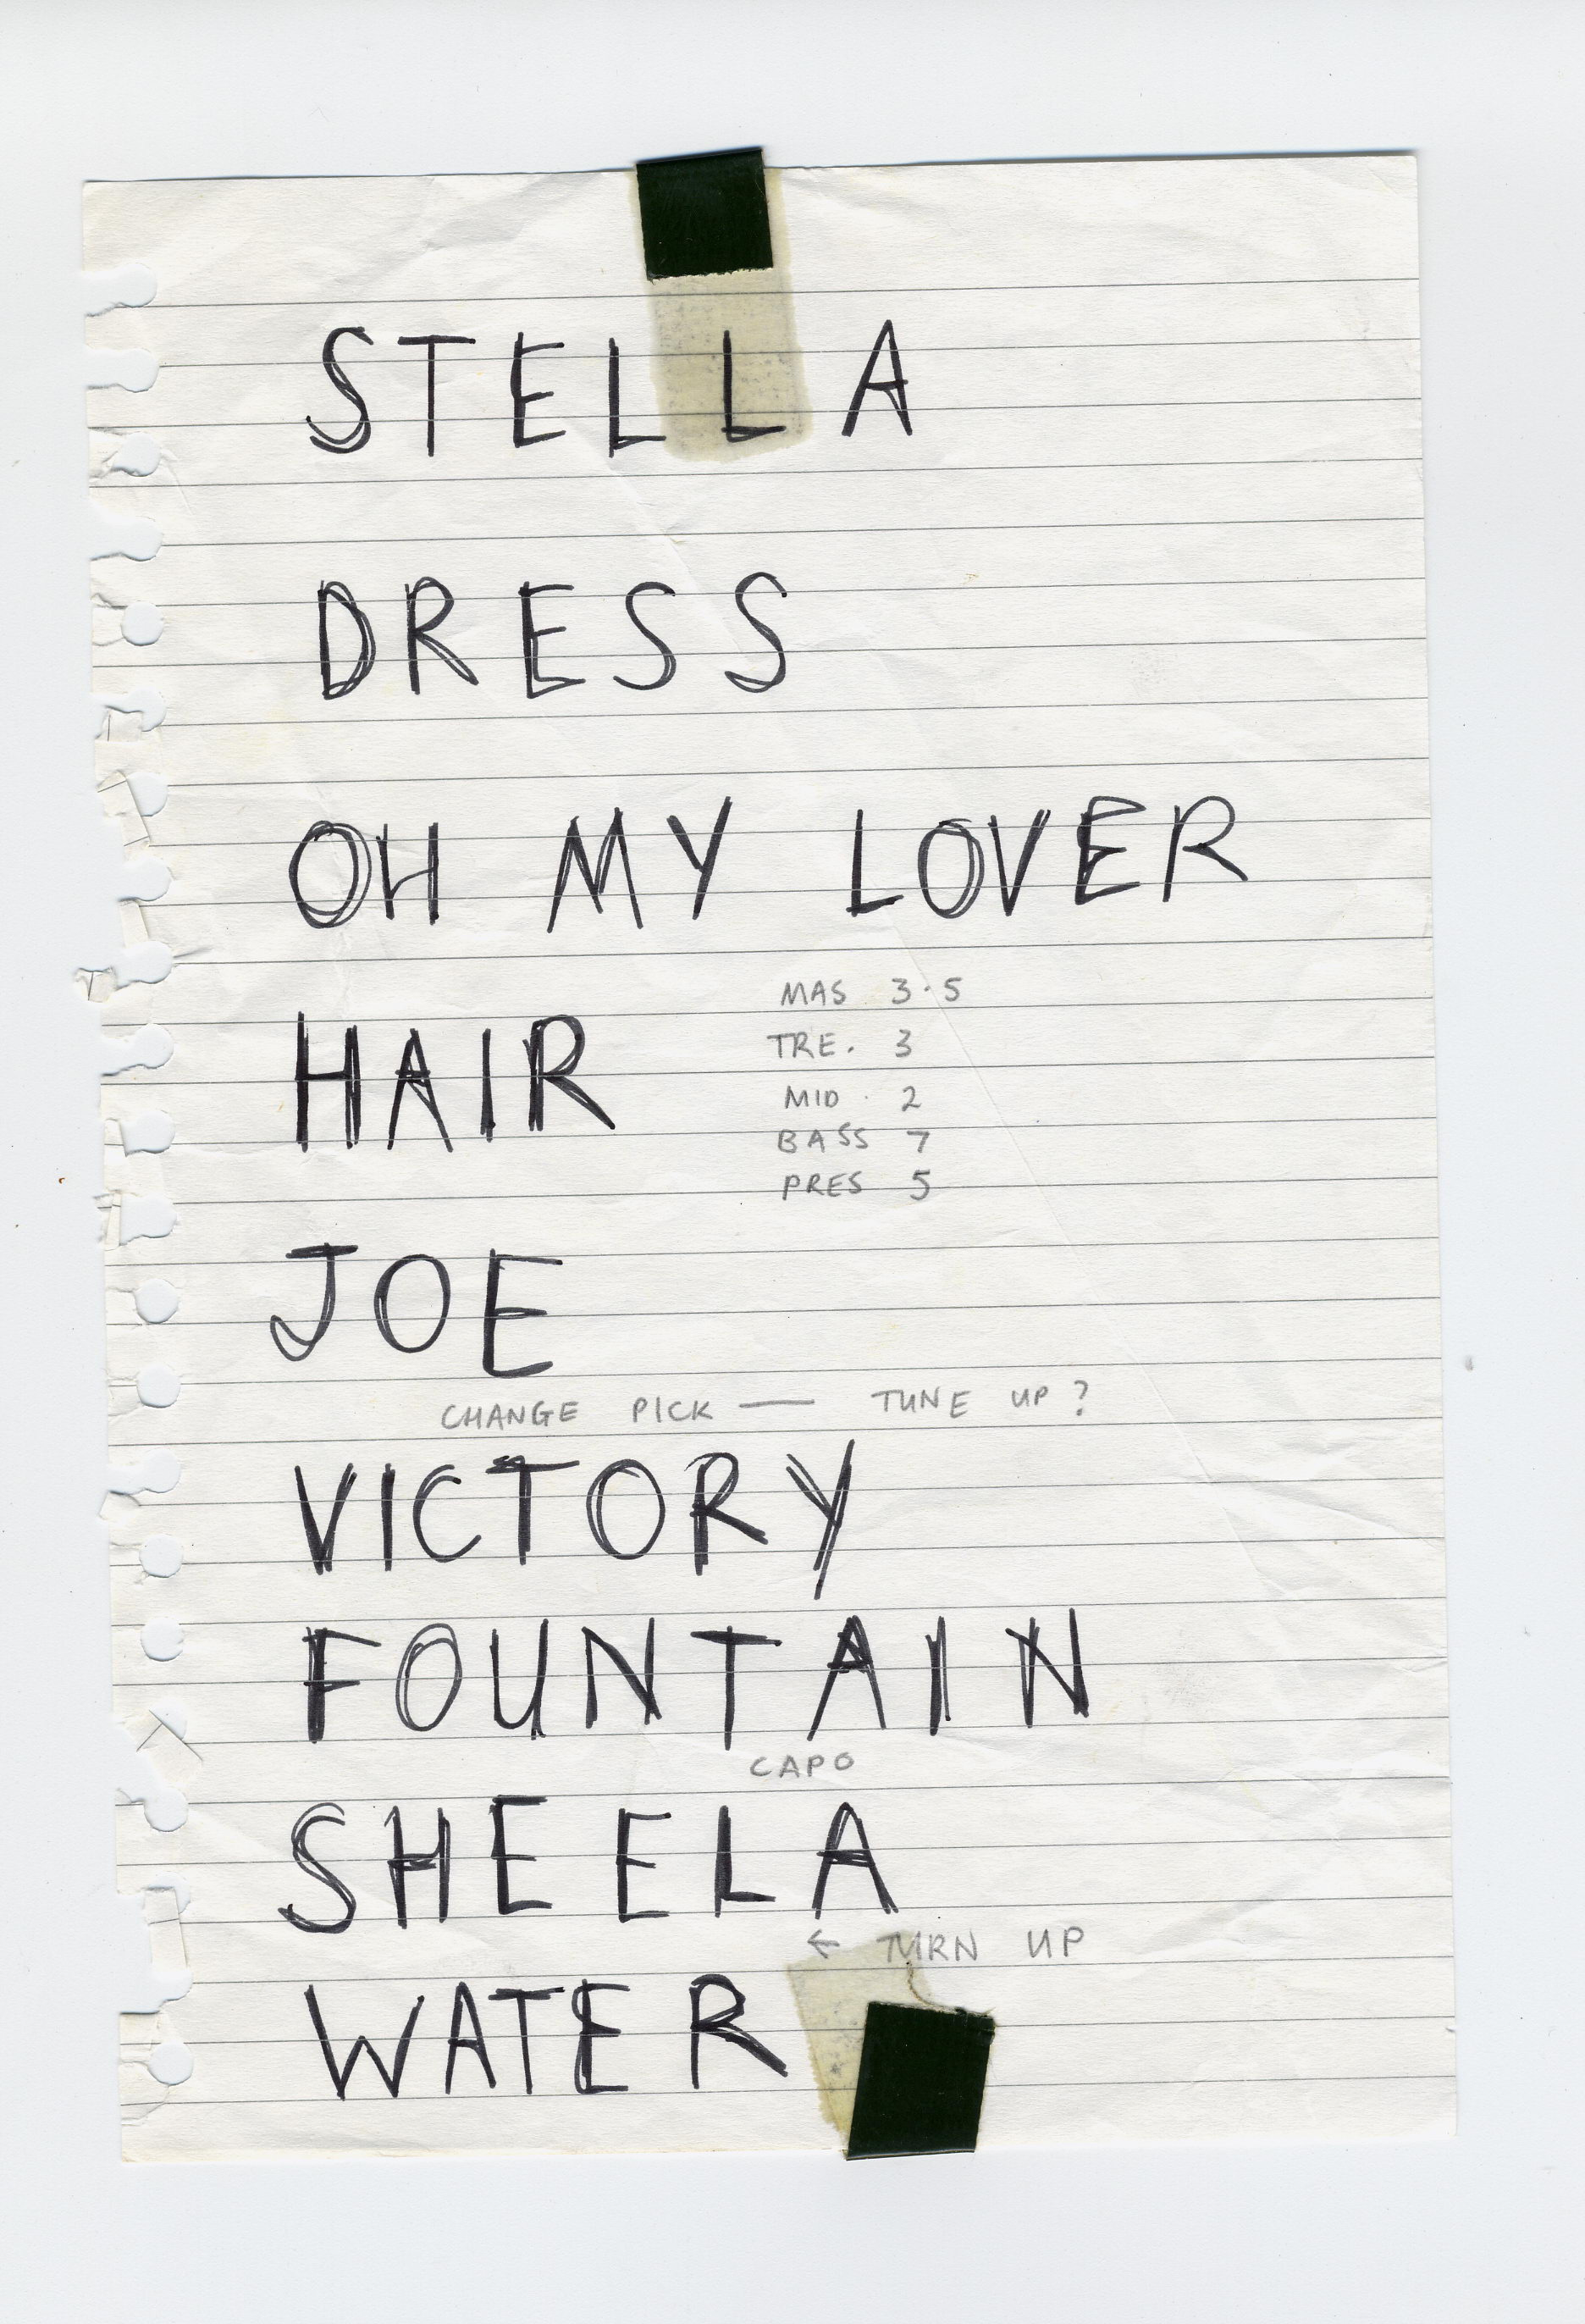 STELLA
DRESS
OH MY LOVER
MAS 3.5
HAIR
TRE. 3
MID. 2
BASS 7
PRES 5
JOE
CHANGE PICK — TUNE UP?
VICTORY
FOUNTAIN
CAPO
SHEELA
← TURN UP
WATER